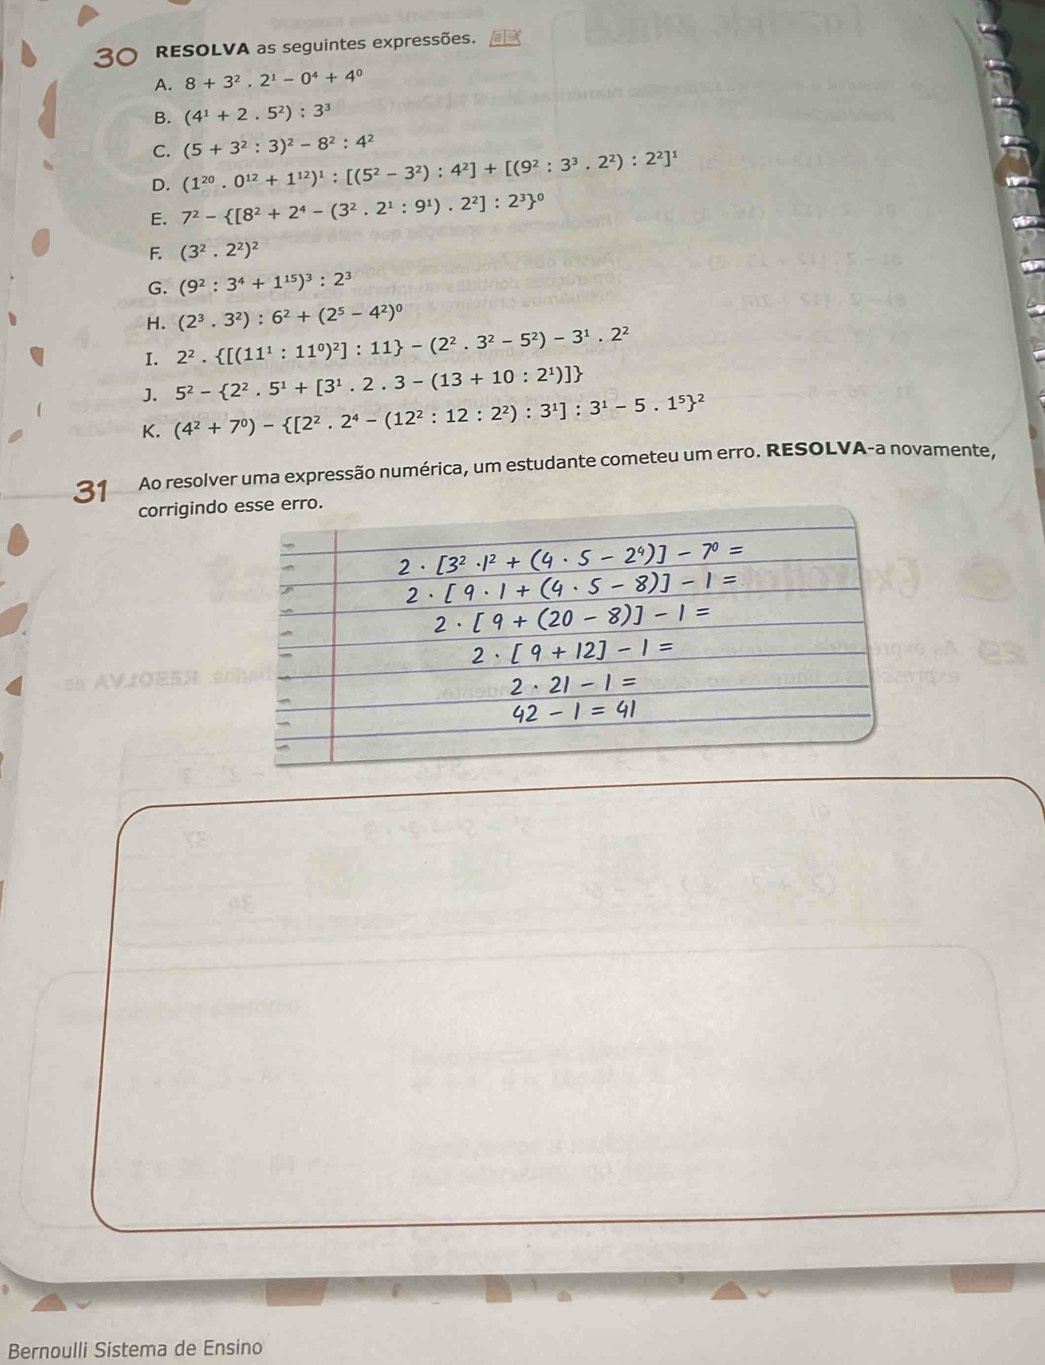 30 RESOLVA as seguintes expressões.
A. 8 + 3² . 2¹ − 0⁴ + 4⁰
B. (4¹ + 2 . 5²) : 3³
C. (5 + 3² : 3)² − 8² : 4²
D. (1²⁰ . 0¹² + 1¹²)¹ : [(5² − 3²) : 4²] + [(9² : 3³ . 2²) : 2²]¹
E. 7² − {[8² + 2⁴ − (3² . 2¹ : 9¹) . 2²] : 2³}⁰
F. (3² . 2²)²
G. (9² : 3⁴ + 1¹⁵)³ : 2³
H. (2³ . 3²) : 6² + (2⁵ − 4²)⁰
I. 2² . {[(11¹ : 11⁰)²] : 11} − (2² . 3² − 5²) − 3¹ . 2²
J. 5² − {2² . 5¹ + [3¹ . 2 . 3 − (13 + 10 : 2¹)]}
K. (4² + 7⁰) − {[2² . 2⁴ − (12² : 12 : 2²) : 3¹] : 3¹ − 5 . 1⁵}²
31 Ao resolver uma expressão numérica, um estudante cometeu um erro. RESOLVA-a novamente,
corrigindo esse erro.
2 · [3² · 1² + (4 · 5 − 2⁴)] − 7⁰ =
2 · [9 · 1 + (4 · 5 − 8)] − 1 =
2 · [9 + (20 − 8)] − 1 =
2 · [9 + 12] − 1 =
2 · 21 − 1 =
42 − 1 = 41
Bernoulli Sistema de Ensino